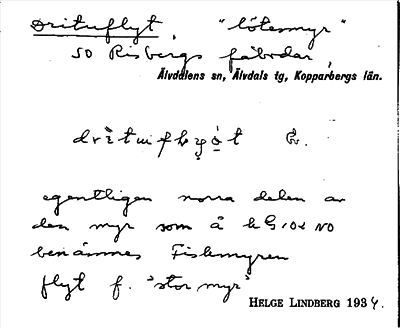 Drituflyt, "lötesmyr"
SO Risbergs fäbodar,
Älvdalens sn, Älvdals tg, Kopparbergs län.
egentligen norra delen av
den myr som å k G:Od NO
benämnes Fiskmyren
flyt f. "stor myr"
HELGE LINDBERG 1934.